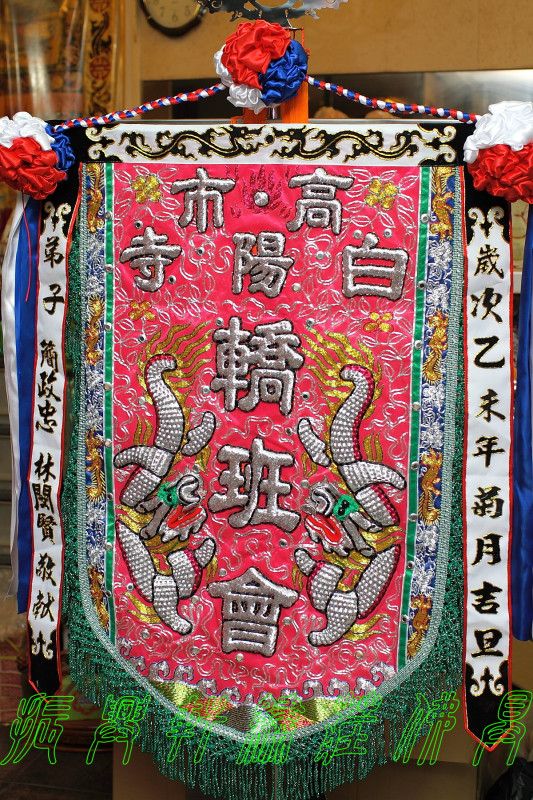 高·市
白陽寺
轎班會
歲次乙未年菊月吉旦
弟子 簡政忠 林閔賢 敬献
振興軒繡莊佛具